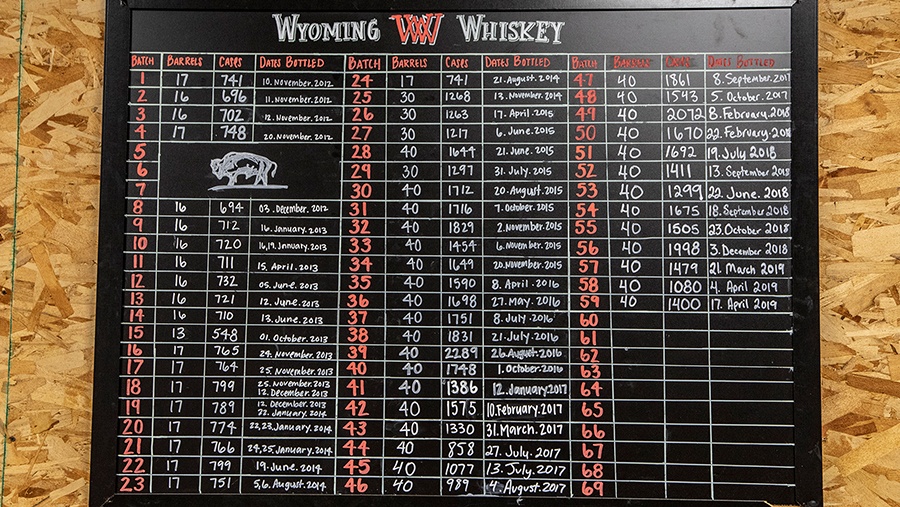 WYOMING WW WHISKEY
BATCH BARRELS CASES DATES BOTTLED BATCH BARRELS CASES DATES BOTTLED BATCH BARRELS CASES DATES BOTTLED
1 17 741 10.November.2012 24 17 741 21.August.2014 47 40 1861 8.September.2017
2 16 696 11.November.2012 25 30 1268 13.November.2014 48 40 1543 5.October.2017
3 16 702 12.November.2012 26 30 1263 17.April.2015 49 40 2072 8.February.2018
4 17 748 20.November.2012 27 30 1217 6.June.2015 50 40 1670 22.February.2018
5 28 40 1644 21.June.2015 51 40 1692 19.July 2018
6 29 30 1297 31.July.2015 52 40 1411 13.September 2018
7 30 40 1712 20.August.2015 53 40 1299 22.June.2018
8 16 694 03.December.2012 31 40 1716 7.October.2015 54 40 1675 18.September 2018
9 16 712 16.January.2013 32 40 1829 2.November.2015 55 40 1505 23.October 2018
10 16 720 16,19.January.2013 33 40 1454 6.November.2015 56 40 1998 3.December 2018
11 16 711 15.April.2013 34 40 1649 20.November.2015 57 40 1479 21.March 2019
12 16 732 05.June.2013 35 40 1590 8.April.2016 58 40 1080 4.April 2019
13 16 721 12.June.2013 36 40 1698 27.May.2016 59 40 1400 17.April 2019
14 16 710 13.June.2013 37 40 1751 8.July.2016 60
15 13 548 01.October.2013 38 40 1831 21.July.2016 61
16 17 765 24.November.2013 39 40 2289 26.August.2016 62
17 17 764 25.November.2013 40 40 1748 1.October.2016 63
18 17 799 25.November.2013 12.December.2013 41 40 1386 12.January.2017 64
19 17 789 12.December.2013 22.January.2014 42 40 1575 10.February.2017 65
20 17 774 22,23.January.2014 43 40 1330 31.March.2017 66
21 17 766 24,25.January.2014 44 40 858 27.July.2017 67
22 17 799 19.June.2014 45 40 1077 13.July.2017 68
23 17 751 5,6.August.2014 46 40 989 4.August.2017 69